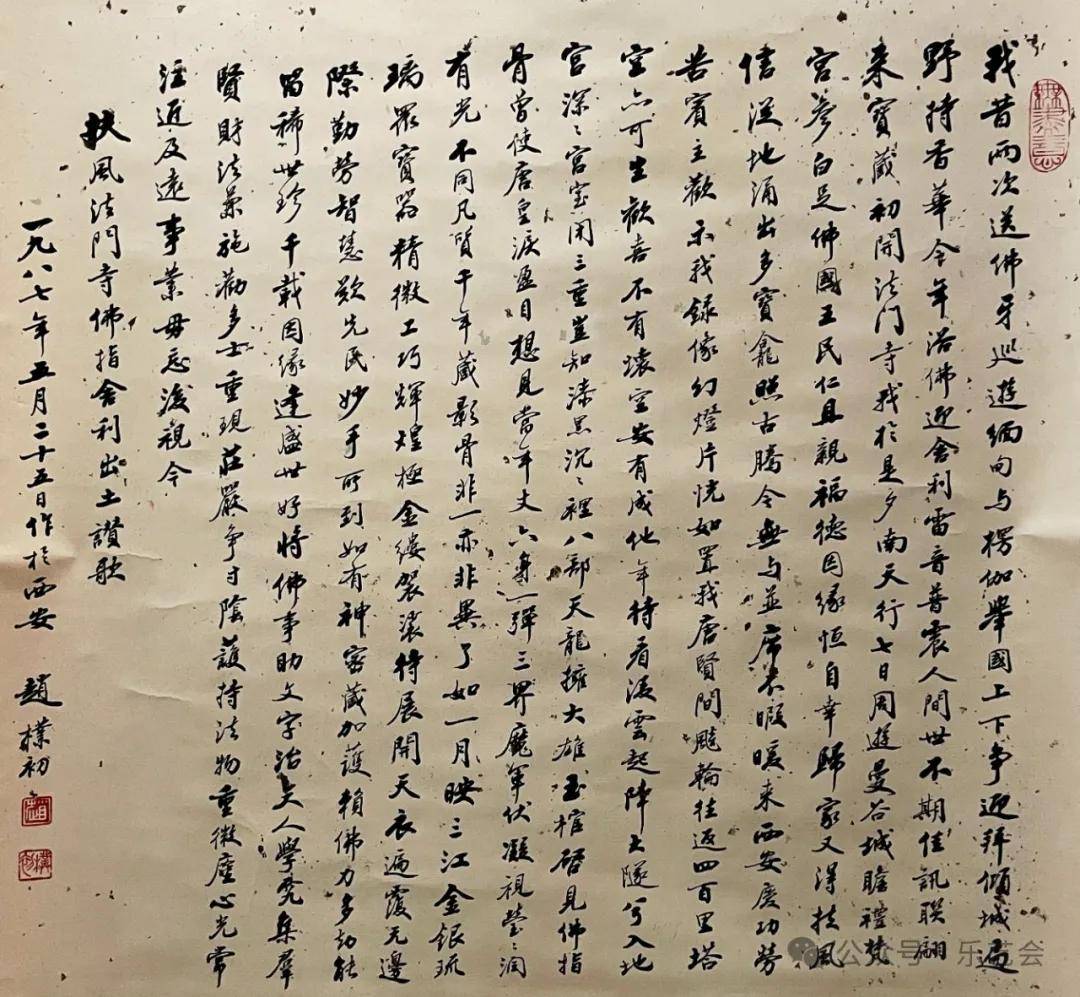 我昔两次送佛牙巡遊缅甸与楞伽舉國上下争迎拜傾城遍
野持香華今年浴佛迎舍利雷音普震人間世不期佳訊联翩
来寶藏初開法门寺我於是夕南天行七日周遊曼谷城瞻禮梵
宫参白足佛國王民仁且親福德因缘恒自幸歸家又得扶風
信從地涌出多寶龕照古腾今無与並席不暇暖来西安慶功勞
苦賓主歡示我録像幻燈片恍如置我唐賢間飈輪往返四百里塔
空亦可生歡喜不有壞空安有成他年待看凌雲起降土隧兮入地
宫深深宫室闭三重豈知漆黑沉沉裡八部天龍擁大雄玉棺啓見佛指
骨曾使唐皇淚盈目想見當年丈六身一彈三界魔軍伏凝視瑩瑩潤
有光不同凡質千年藏影骨非一亦非異了如一月映三江金銀琉
璃眾寶器精微工巧輝煌極金缕袈裟特展開天衣遍覆无邊
際勤劳智慧欽先民妙手所到如有神密藏加護赖佛力多劫能
留稀世珍千載因缘逢盛世好將佛事助文字治史人學究集群
賢財法兼施勸多士重現莊嚴争寸陰護持法物重微塵心光常
注迩及遠事業毋忘後視今
扶風法門寺佛指舍利出土讚歌
一九八七年五月二十五日作於西安 趙樸初
公众号 乐艺会